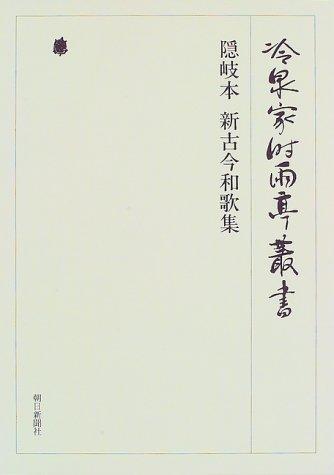 冷泉家時雨亭叢書
隠岐本 新古今和歌集
朝日新聞社